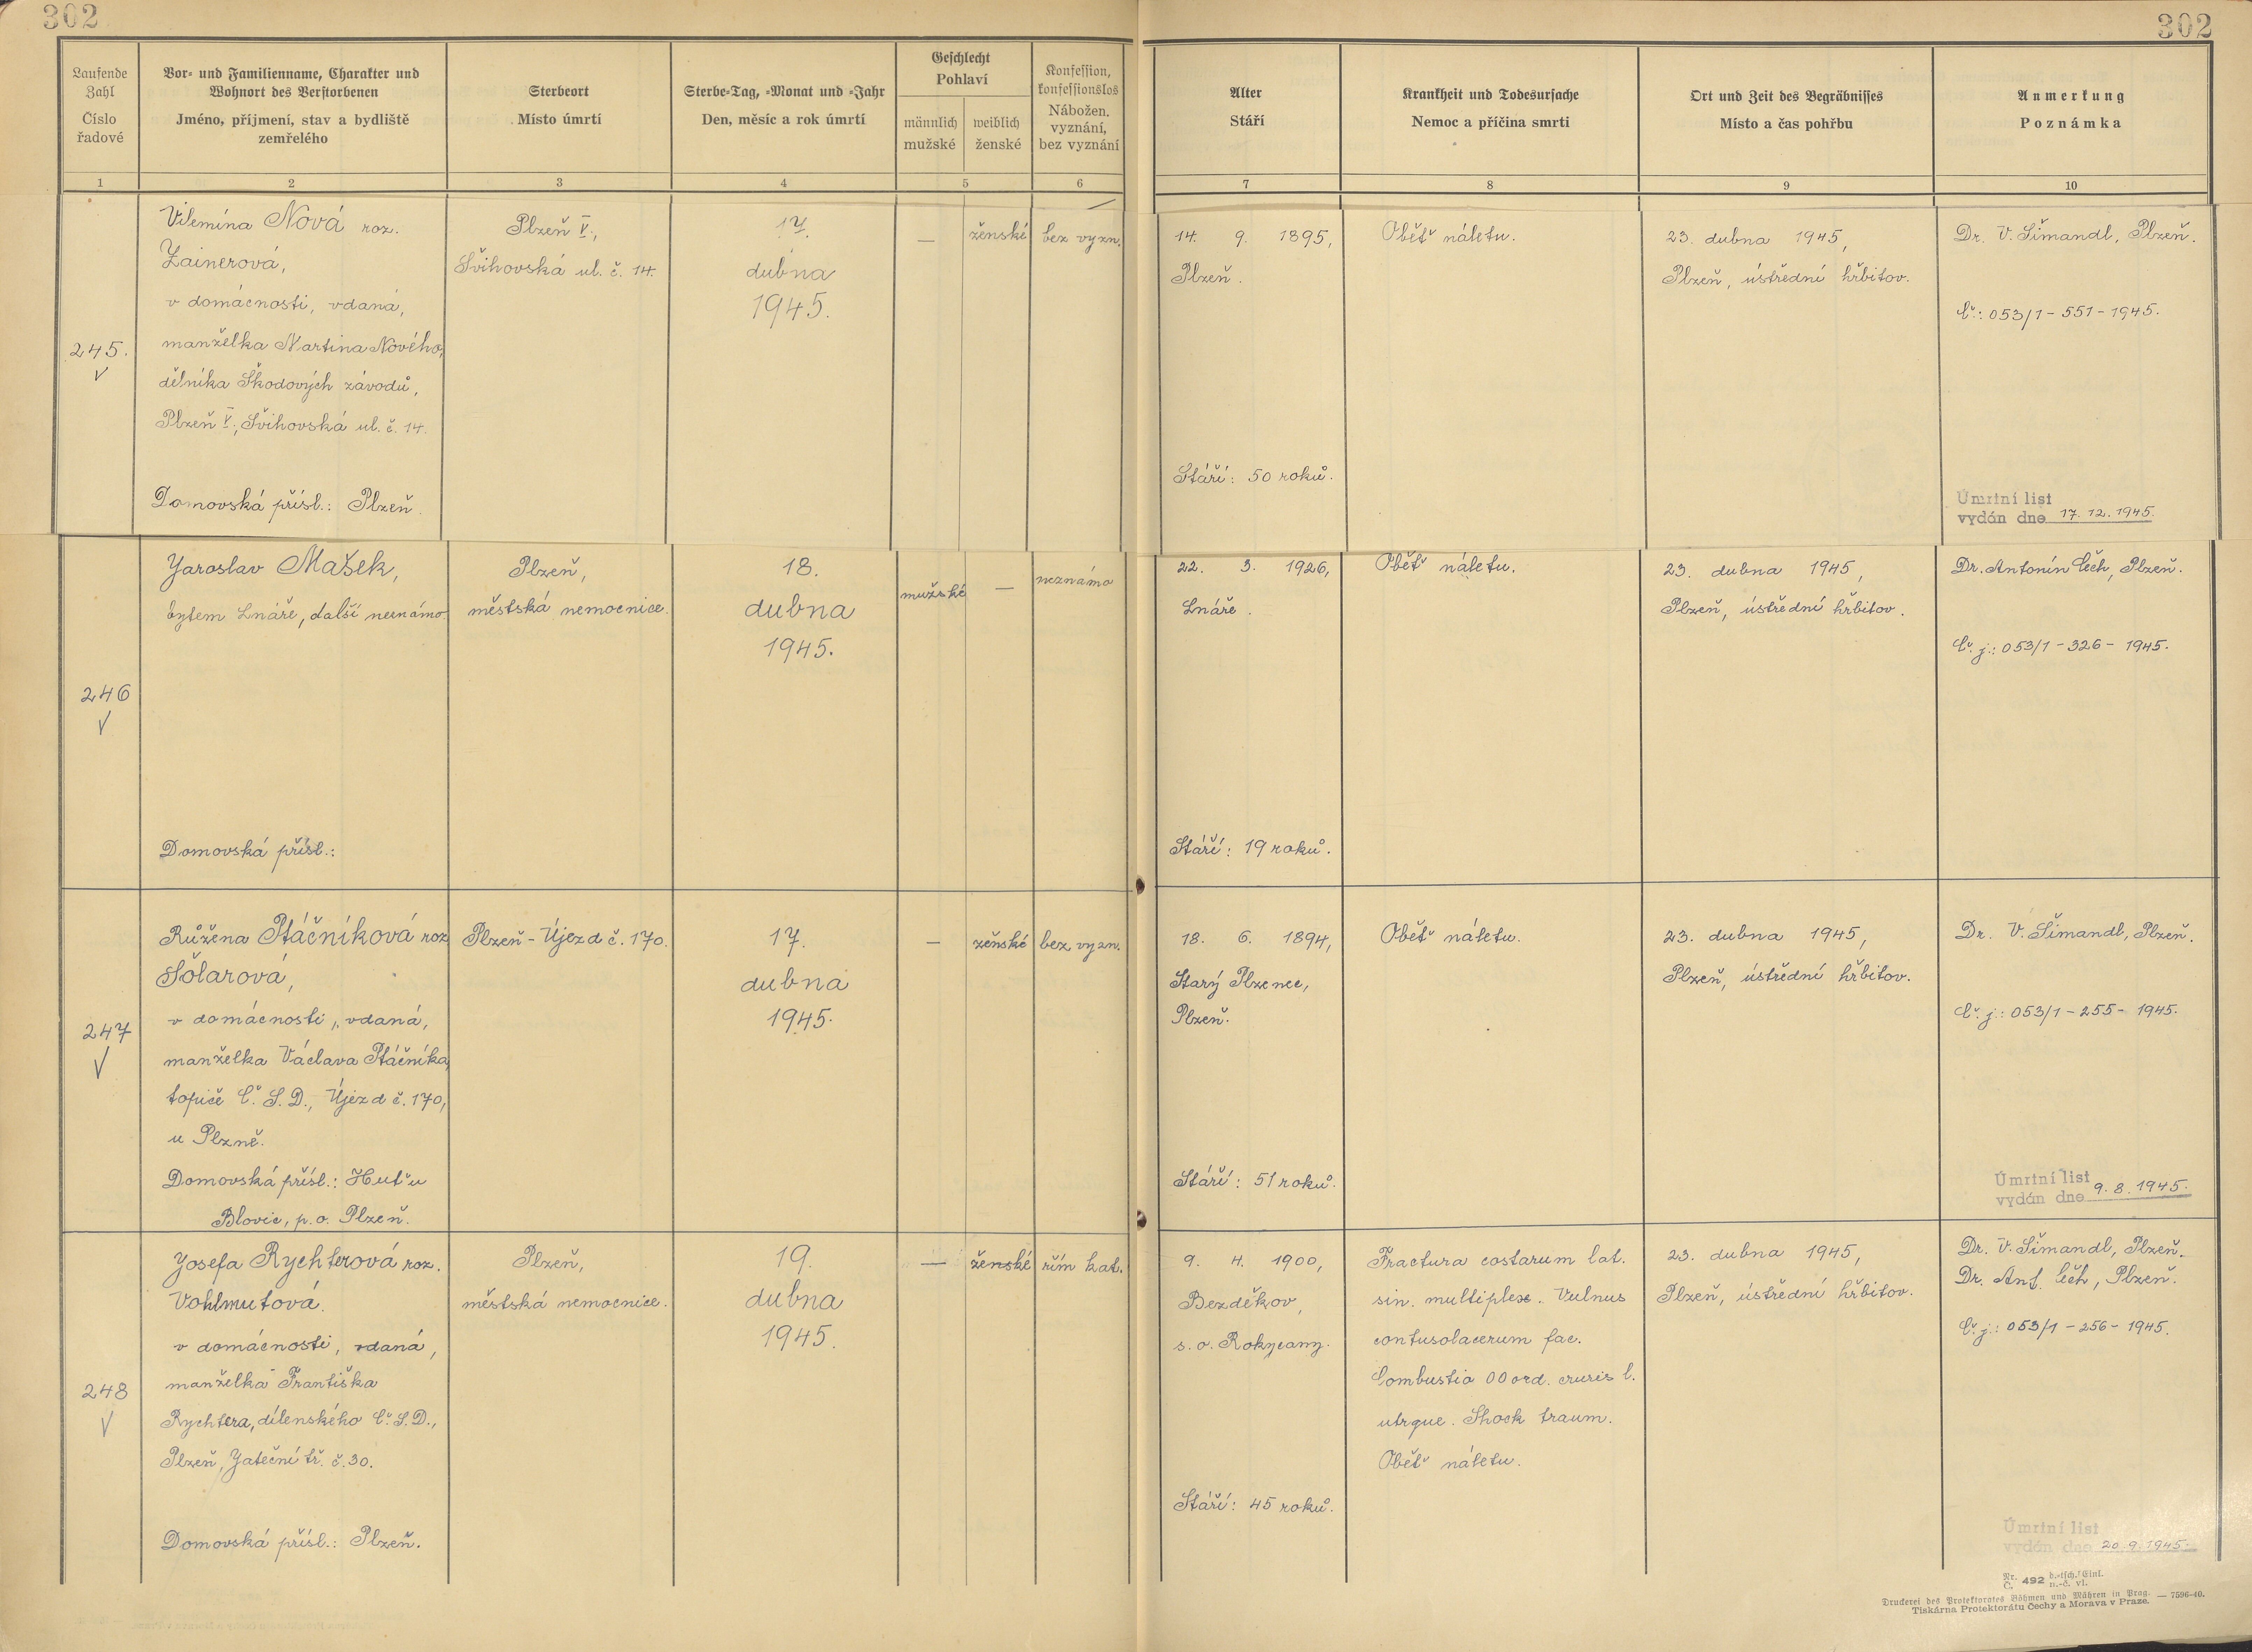 302
302
Laufende Zahl
Číslo řadové
Vor- und Familienname, Charakter und
Wohnort des Verstorbenen
Jméno, příjmení, stav a bydliště
zemřelého
Sterbeort
Místo úmrtí
Sterbe-Tag, -Monat und -Jahr
Den, měsíc a rok úmrtí
Geschlecht
Pohlaví
männlich
mužské
weiblich
ženské
Konfession,
konfessionslos
Nábožen.
vyznání,
bez vyznání
Alter
Stáří
Krankheit und Todesursache
Nemoc a příčina smrti
Ort und Zeit des Begräbnisses
Místo a čas pohřbu
Anmerkung
Poznámka
1 2 3 4 5 6 7 8 9 10
245.
Vilemína Nová roz.
Zainerová,
v domácnosti, vdaná,
manželka Martina Nového,
dělníka Škodových závodů,
Plzeň V., Švihovská ul. č. 14.
Domovská přísl.: Plzeň.
Plzeň V.,
Švihovská ul. č. 14.
17.
dubna
1945.
—
ženské
bez vyzn.
14. 9. 1895,
Plzeň.
Stáří: 50 roků.
Oběť náletu.
23. dubna 1945,
Plzeň, ústřední hřbitov.
Dr. V. Šimandl, Plzeň.
Č.: 053/1-551-1945.
Úmrtní list
vydán dne 17. 12. 1945.
246
Jaroslav Mašek,
bytem Lnáře, další neznámo.
Domovská přísl.:
Plzeň,
městská nemocnice.
18.
dubna
1945.
mužské
—
neznámo
22. 3. 1926,
Lnáře.
Stáří: 19 roků.
Oběť náletu.
23. dubna 1945,
Plzeň, ústřední hřbitov.
Dr. Antonín Čech, Plzeň.
Č. j.: 053/1-326-1945.
247
Růžena Ptáčníková roz.
Šolarová,
v domácnosti, vdaná,
manželka Václava Ptáčníka,
topiče Č. S. D., Újezd č. 170,
u Plzně.
Domovská přísl.: Huť u
Blovic, p. o. Plzeň.
Plzeň-Újezd č. 170.
17.
dubna
1945.
—
ženské
bez vyzn.
18. 6. 1894,
Starý Plzenec,
Plzeň.
Stáří: 51 roků.
Oběť náletu.
23. dubna 1945,
Plzeň, ústřední hřbitov.
Dr. V. Šimandl, Plzeň.
Č. j.: 053/1-255-1945.
Úmrtní list
vydán dne 9. 8. 1945.
248
Josefa Rychterová roz.
Vohlmutová.
v domácnosti, vdaná,
manželka Františka
Rychtera, dílenského Č. S. D.,
Plzeň, Jateční tř. č. 30.
Domovská přísl.: Plzeň.
Plzeň,
městská nemocnice.
19.
dubna
1945.
—
ženské
řím kat.
9. 4. 1900,
Bezděkov,
s. o. Rokycany.
Stáří: 45 roků.
Fractura costarum lat.
sin. multiplex. Vulnus
contusolacerum fac.
Combustio 00 ord. cruris l.
utrque. Shock traum.
Oběť náletu.
23. dubna 1945,
Plzeň, ústřední hřbitov.
Dr. V. Šimandl, Plzeň.
Dr. Ant. Čech, Plzeň.
Č. j.: 053/1-256-1945.
Úmrtní list
vydán dne 20. 9. 1945.
Nr. Č. 492 d.-tsch. Einl. n.-č. vl.
Druckerei des Protektorates Böhmen und Mähren in Prag. — 7596-40.
Tiskárna Protektorátu Čechy a Morava v Praze.